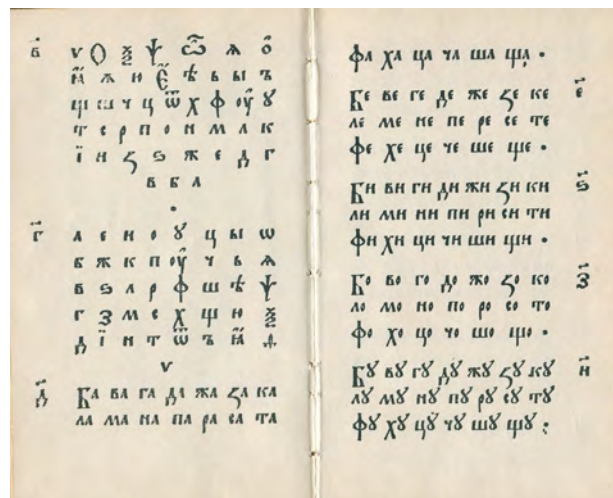 в҃ ѵ Ѻ ѯ ѱ ѽ ѧ ѻ
ꙗ ѫ ю Є ѣ ь ы ъ
щ ш ч ц ѿ х ф оу ꙋ
т с р п о н м л к
ї и ꙁ ѕ ж е д г
в б а
•
г҃ а е и о ꙋ ц ы ѡ
б ж к п оу ч ь ѧ
в ѕ л р ф ш ѣ ѱ
г ꙁ м с х щ ю ѯ
д ї н т ѿ ъ ꙗ ѫ
ѵ
д҃ Ба ва га да жа ꙁа ка
ла ма на па ра са та
фа ха ца ча ша ща •
Бе ве ге де же ꙁе ке е҃
ле ме не пе ре се те
фе хе це че ше ще •
Би ви ги ди жи ꙁи ки ѕ҃
ли ми ни пи ри си ти
фи хи ци чи ши щи •
Бо во го до жо ꙁо ко ꙁ҃
ло мо но по ро со то
фо хо цо чо шо що •
Бꙋ вꙋ гꙋ дꙋ жꙋ ꙁꙋ кꙋ и҃
лꙋ мꙋ нꙋ пꙋ рꙋ сꙋ тꙋ
фꙋ хꙋ цꙋ чꙋ шꙋ щꙋ :